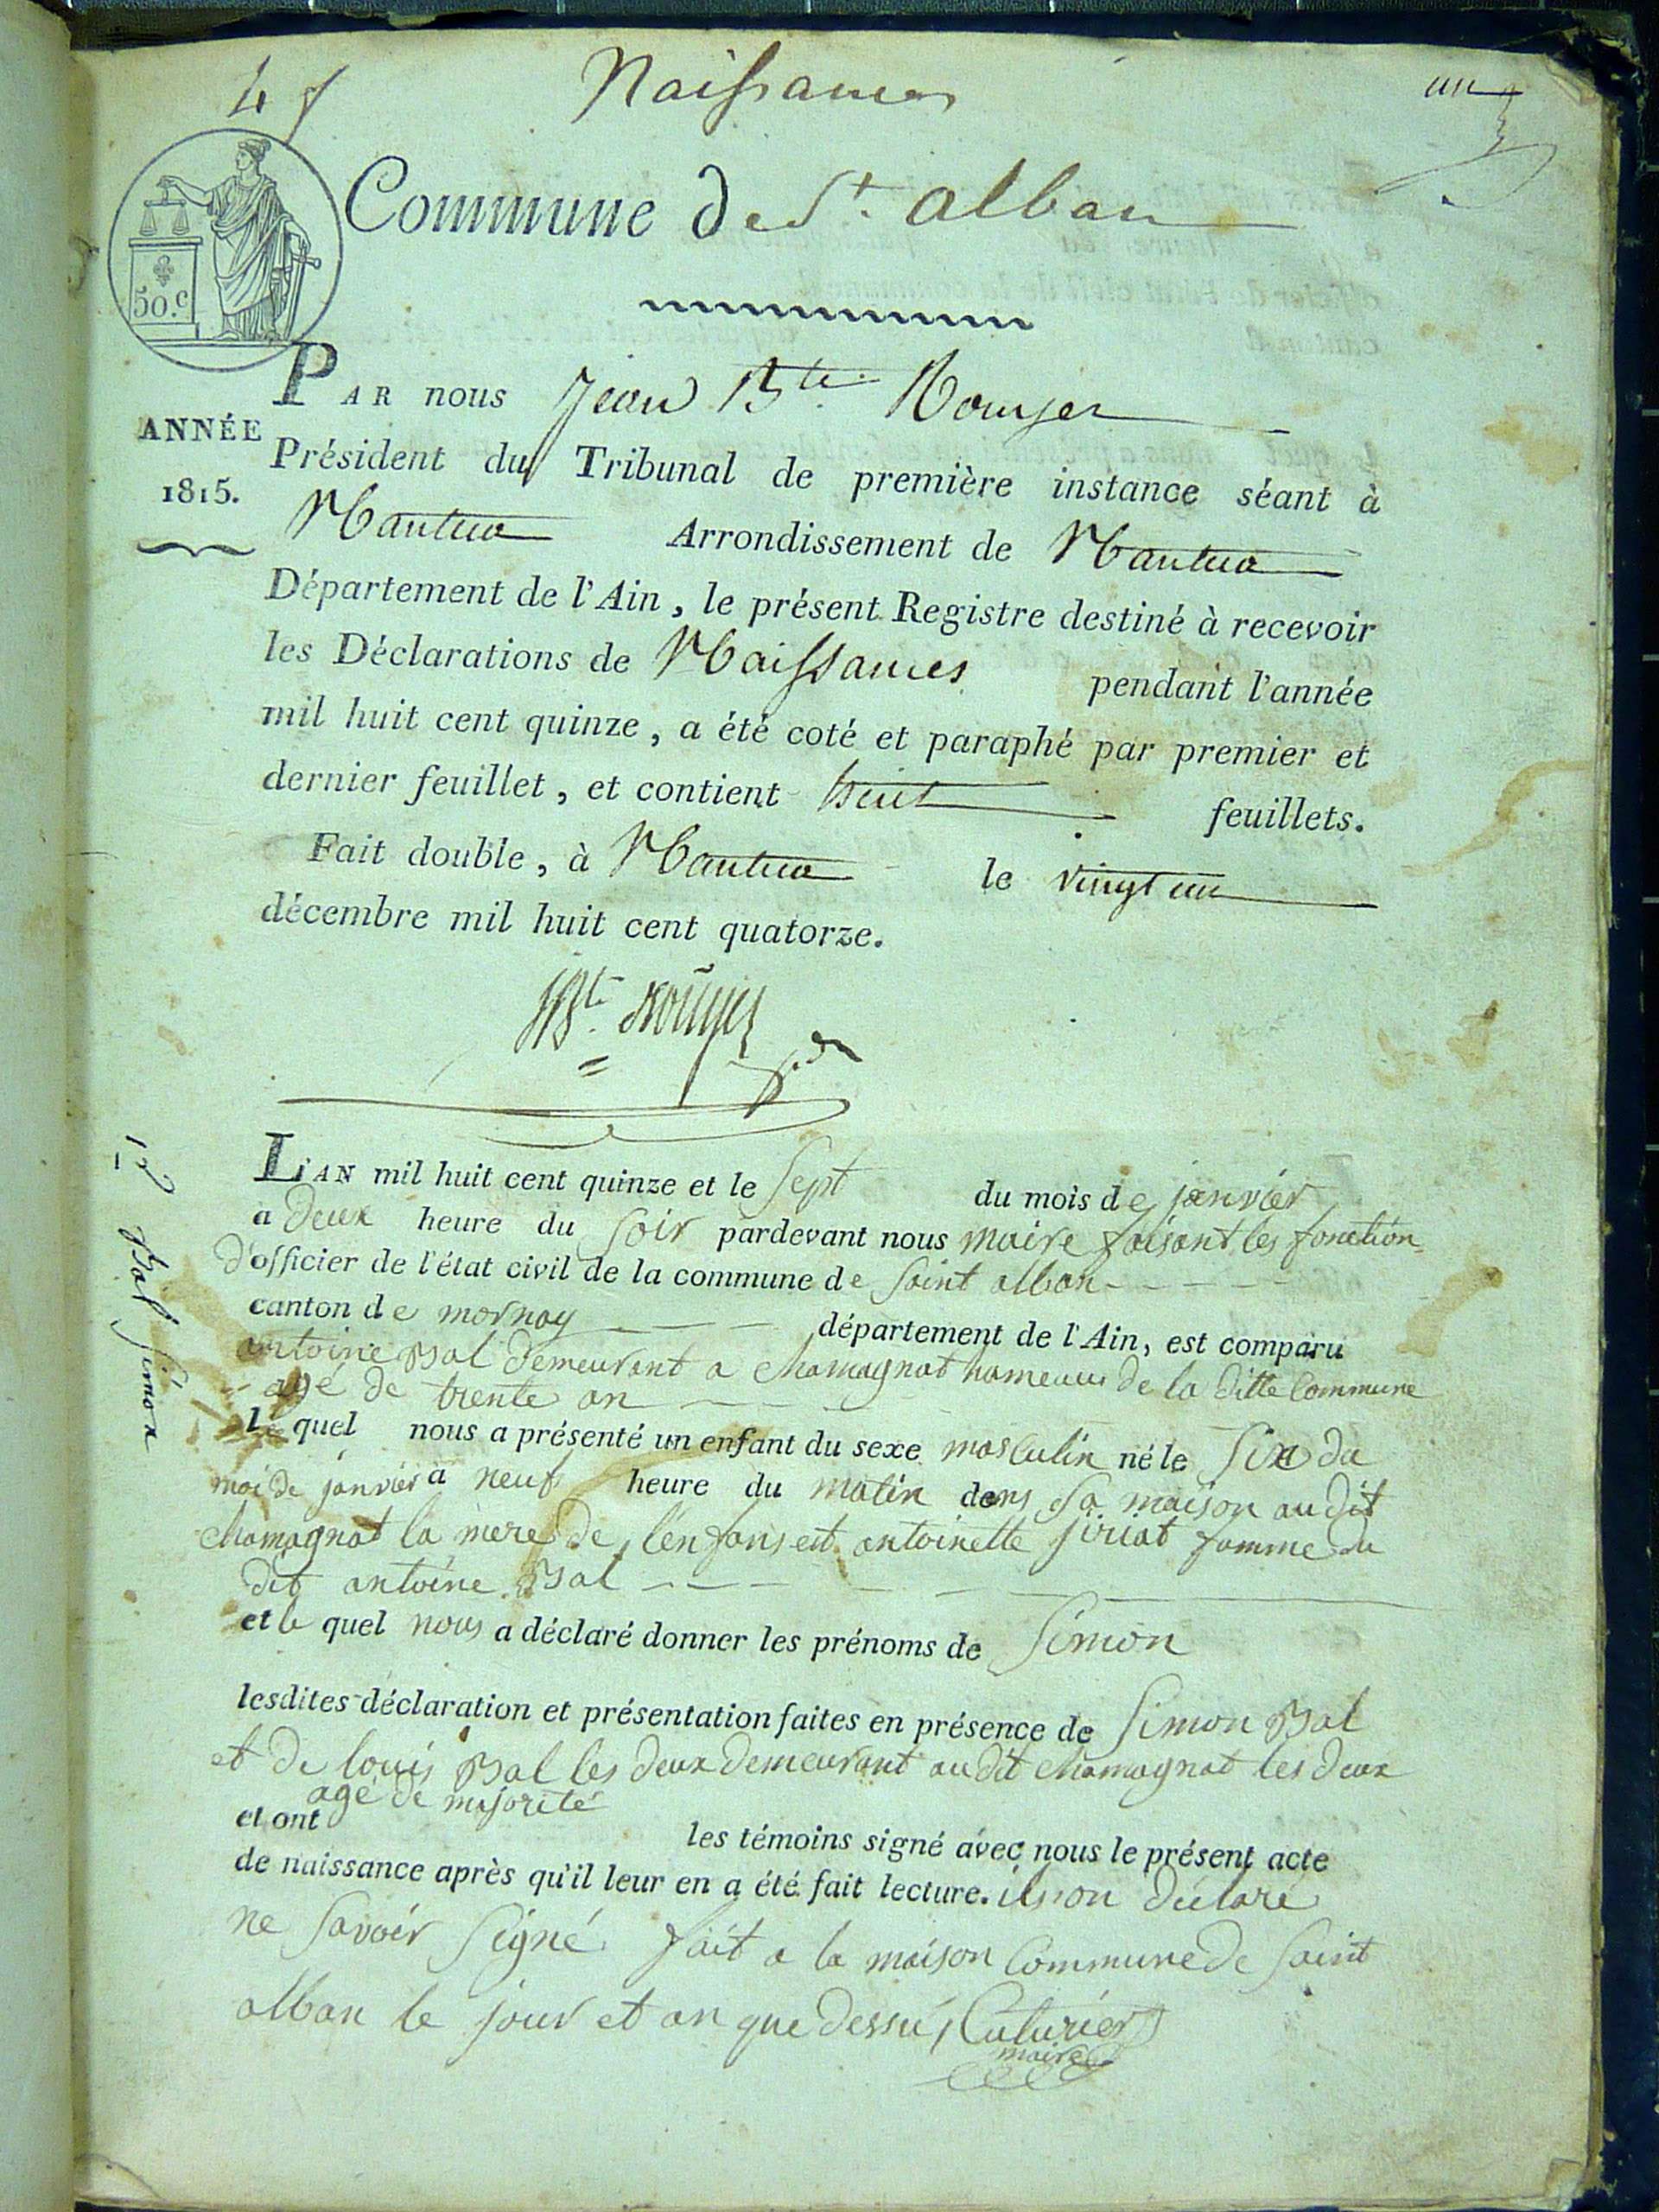 Naissances
un
Commune de St. alban
50.c
PAR nous Jean Bte.
ANNÉE
1815.
Président du Tribunal de première instance séant à
Nantua Arrondissement de Nantua
Département de l'Ain, le présent Registre destiné à recevoir
les Déclarations de Naissances pendant l'année
mil huit cent quinze, a été coté et paraphé par premier et
dernier feuillet, et contient huit feuillets.
Fait double, à Nantua le vingt un
décembre mil huit cent quatorze.
L'AN mil huit cent quinze et le sept du mois de janvier
a deux heure du soir pardevant nous maire faisant les fonction
d'officier de l'état civil de la commune de saint alban
canton de mornay département de l'Ain, est comparu
antoine Bal demeurant a chamagnat hameau de la ditte Commune
agé de trente an
le quel nous a présenté un enfant du sexe masculin né le six du
moi de janvier a neuf heure du matin dans sa maison au dit
chamagnat la mere de l'enfans est antoinette famme du
dit antoine Bal
et le quel nous a déclaré donner les prénoms de Simon
lesdites déclaration et présentation faites en présence de Simon Bal
et de louis Bal les deux demeurant au dit chamagnat les deux
agé de majorité
et ont les témoins signé avec nous le présent acte
de naissance après qu'il leur en a été fait lecture. ils on déclaré
ne savoir signé fait a la maison Commune de Saint
alban le jour et an que dessus
maire
Bal Simon